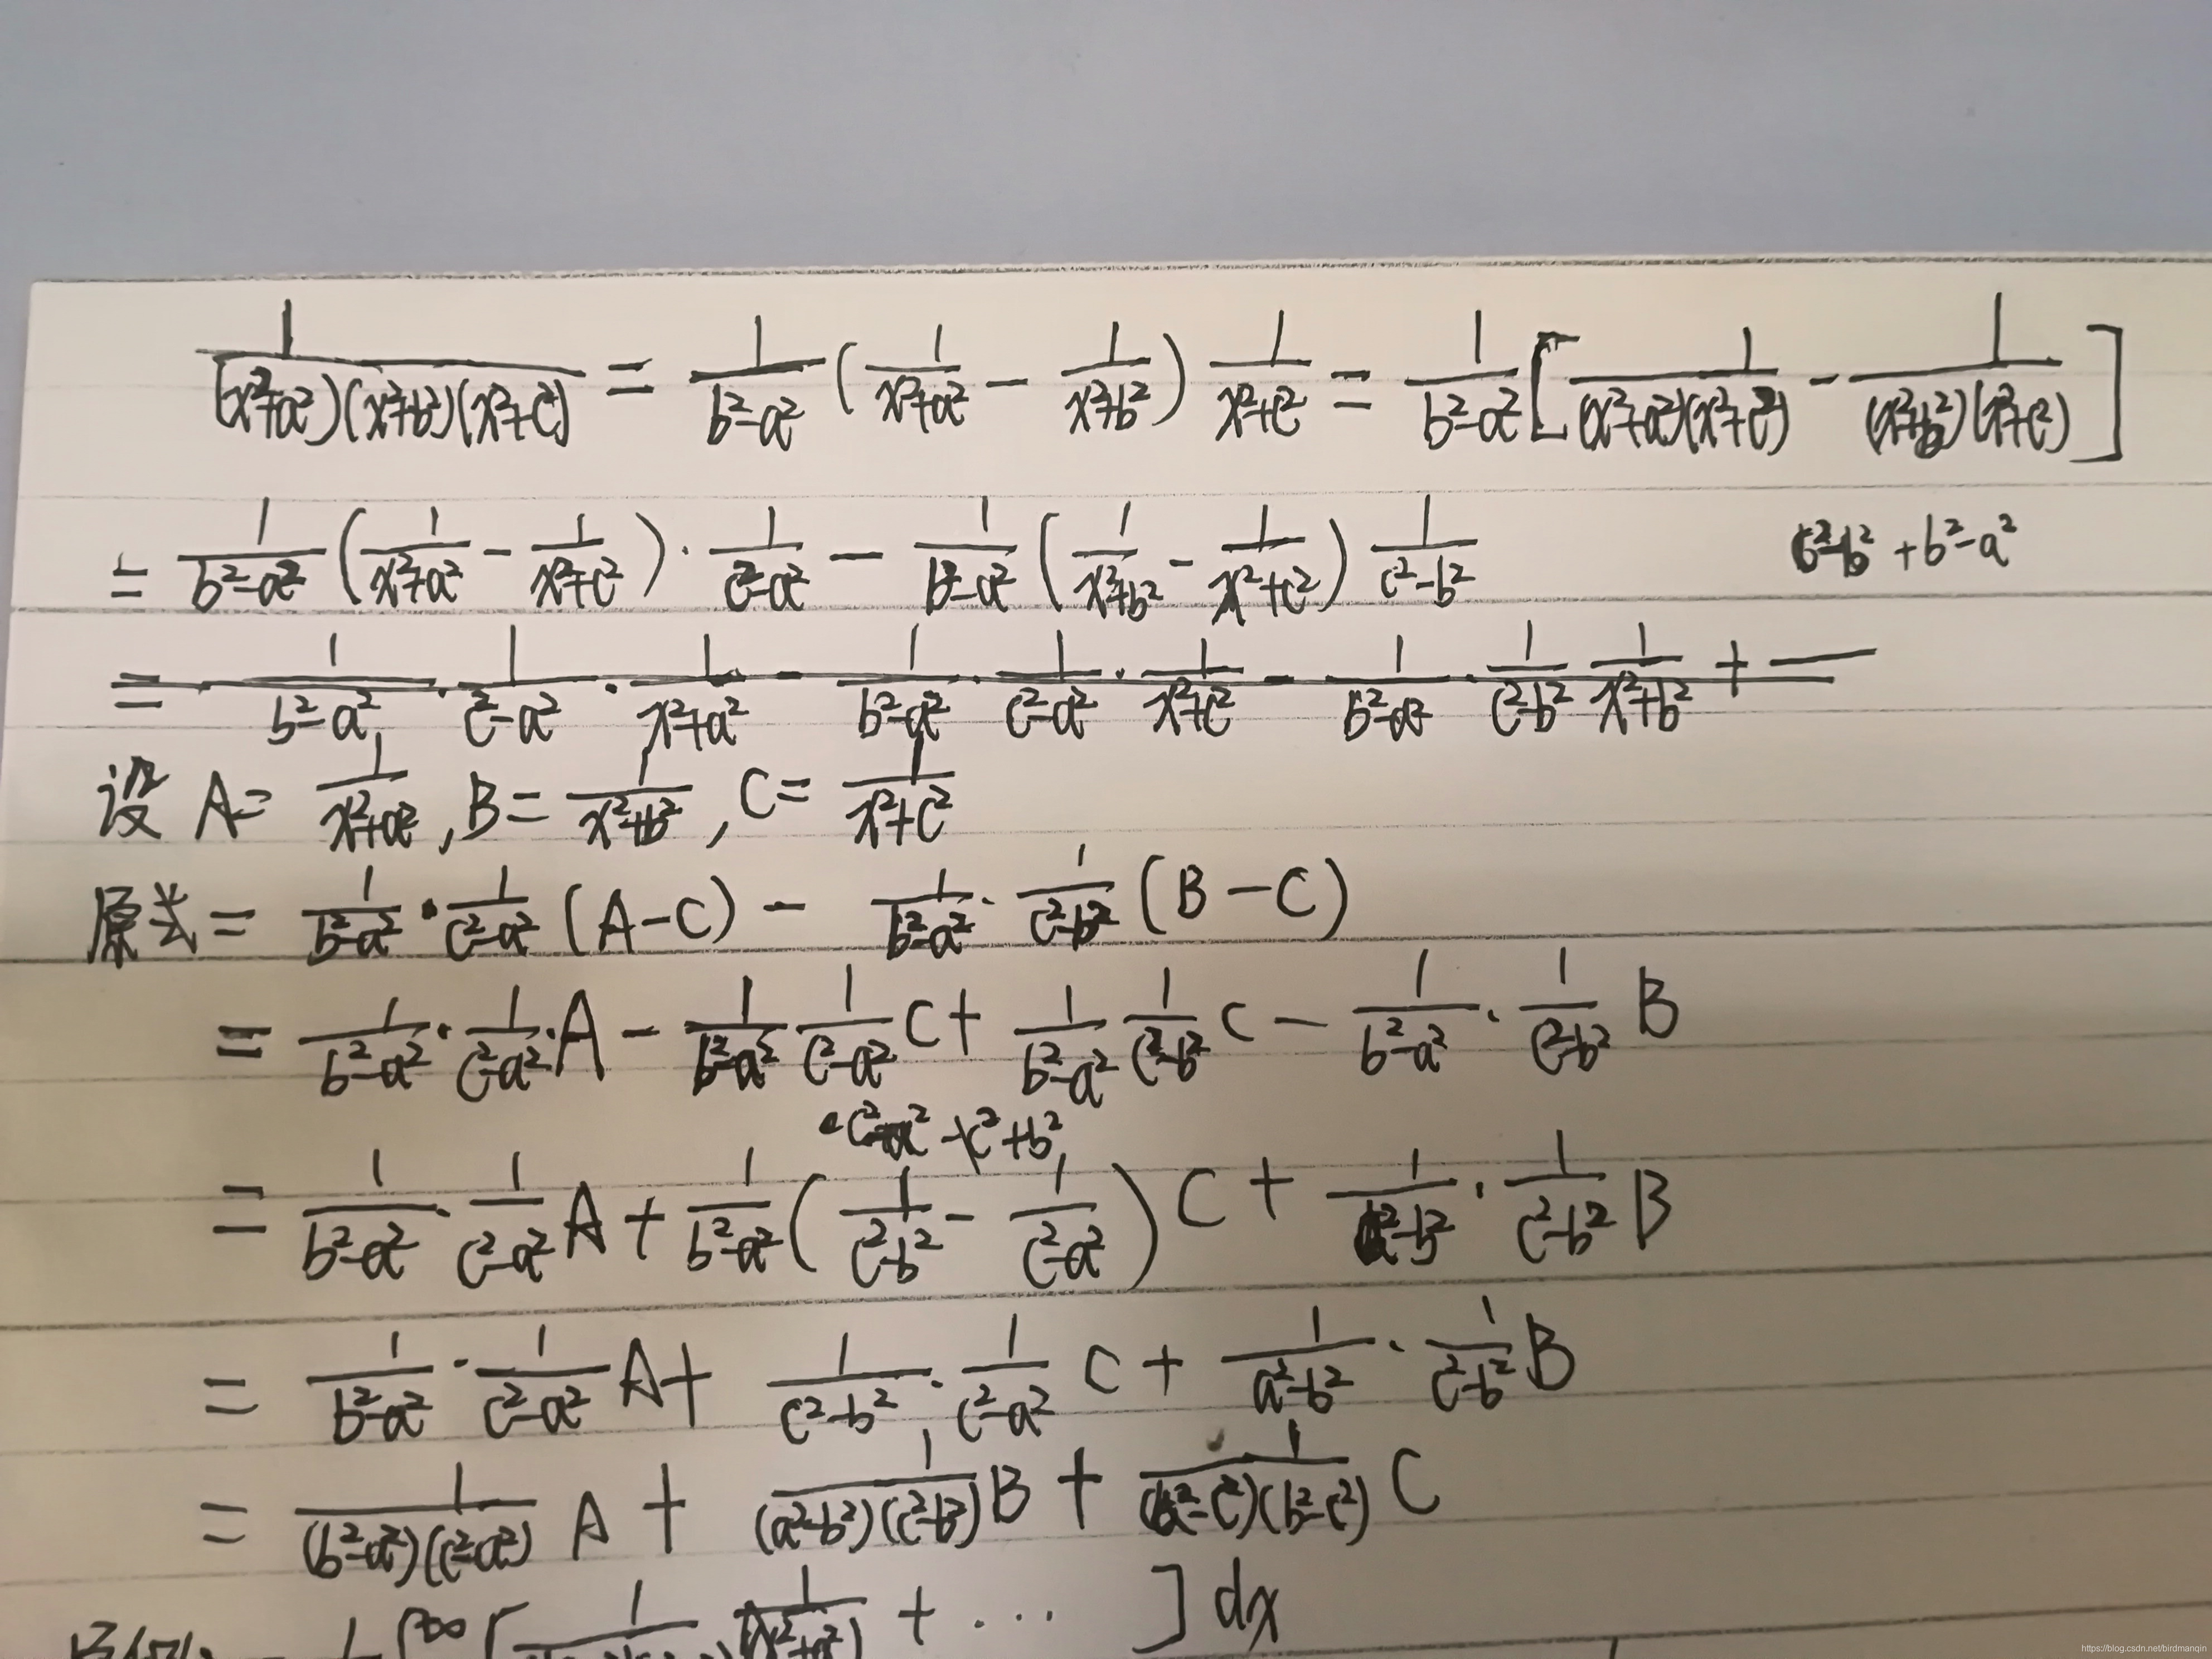 1/((x²+a²)(x²+b²)(x²+c²)) = 1/(b²-a²) (1/(x²+a²) - 1/(x²+b²)) 1/(x²+c²) = 1/(b²-a²) [1/((x²+a²)(x²+c²)) - 1/((x²+b²)(x²+c²))]
= 1/(b²-a²) (1/(x²+a²) - 1/(x²+c²)) · 1/(c²-a²) - 1/(b²-a²) (1/(x²+b²) - 1/(x²+c²)) 1/(c²-b²)
c²-b² + b²-a²
= 1/(b²-a²) · 1/(c²-a²) · 1/(x²+a²) - 1/(b²-a²) · 1/(c²-a²) · 1/(x²+c²) - 1/(b²-a²) · 1/(c²-b²) 1/(x²+b²) + —
设 A = 1/(x²+a²), B = 1/(x²+b²), C = 1/(x²+c²)
原式 = 1/(b²-a²) · 1/(c²-a²) (A-C) - 1/(b²-a²) · 1/(c²-b²) (B-C)
= 1/(b²-a²) · 1/(c²-a²) · A - 1/(b²-a²) 1/(c²-a²) C + 1/(b²-a²) 1/(c²-b²) C - 1/(b²-a²) · 1/(c²-b²) B
c²-a² -c²+b²
= 1/(b²-a²) · 1/(c²-a²) A + 1/(b²-a²) (1/(c²-b²) - 1/(c²-a²)) C + 1/(a²-b²) · 1/(c²-b²) B
= 1/(b²-a²) · 1/(c²-a²) A + 1/(c²-b²) · 1/(c²-a²) C + 1/(a²-b²) · 1/(c²-b²) B
= 1/((b²-a²)(c²-a²)) A + 1/((a²-b²)(c²-b²)) B + 1/((a²-c²)(b²-c²)) C
∫ ∞ [ 1 1/(x²+a²) + ... ] dx
https://blog.csdn.net/birdmanqin